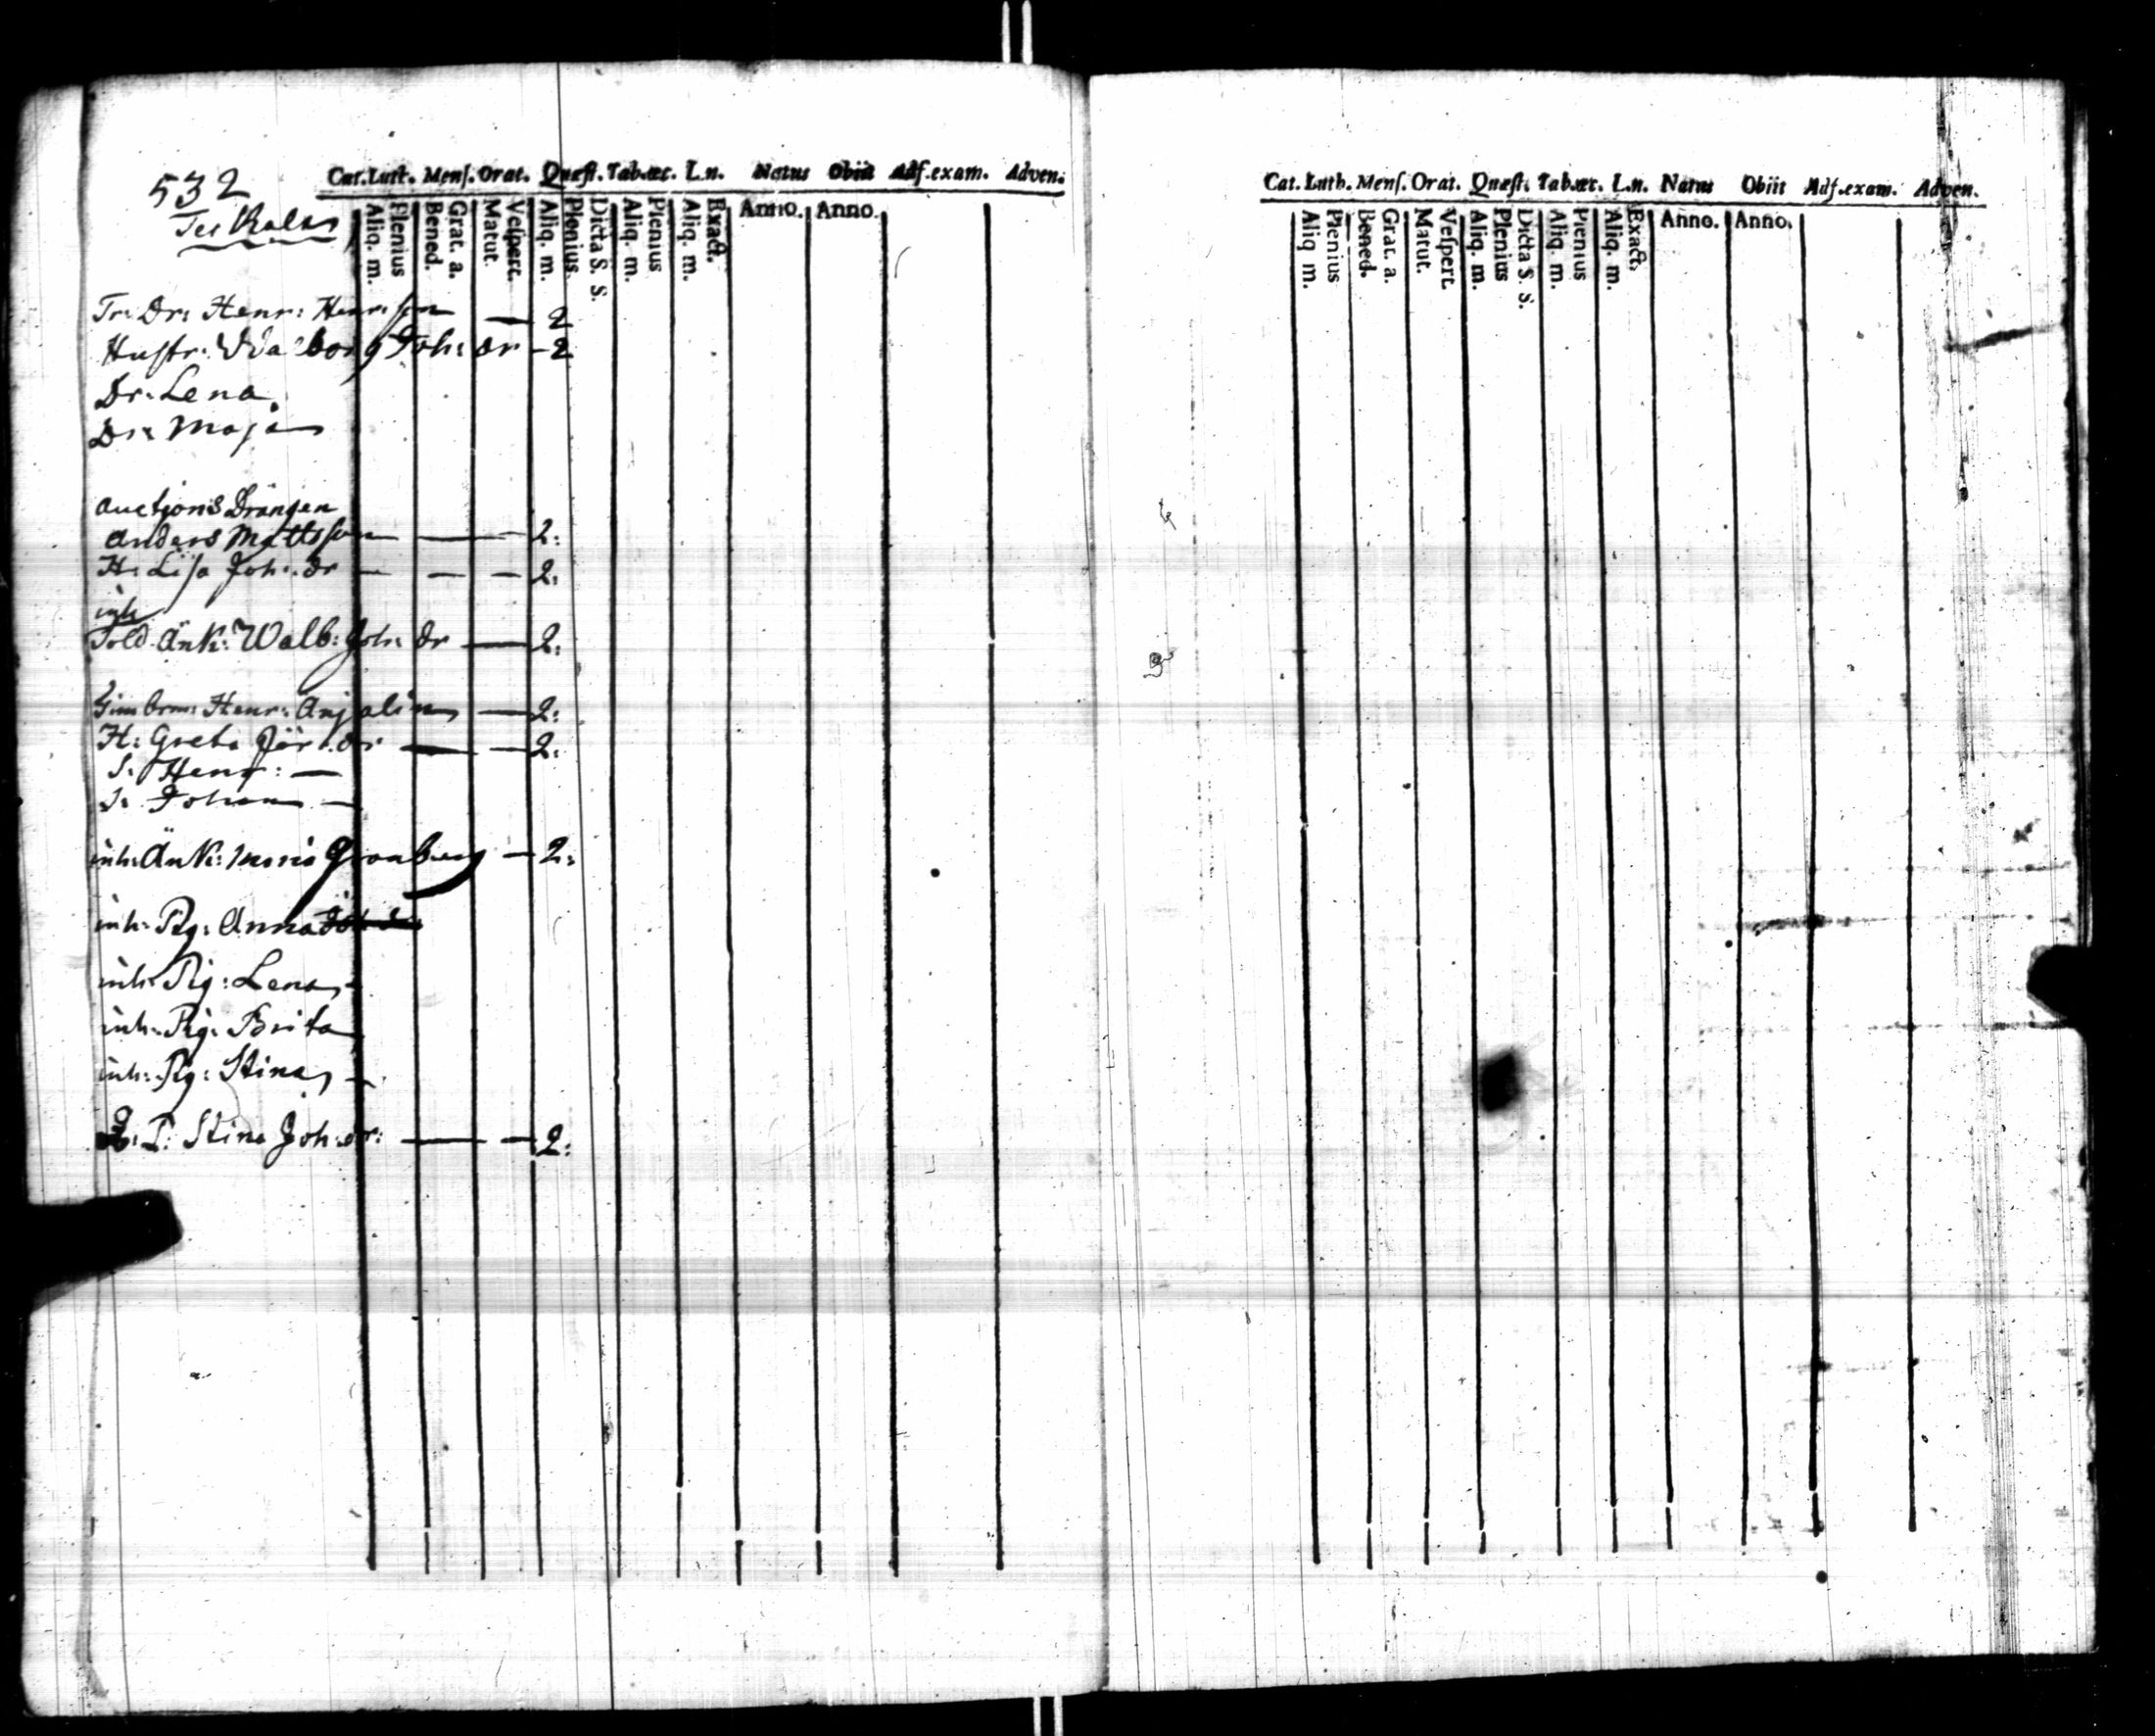 532
Cat. Luth. Menſ. Orat. Quæſt. Tab.œc. L.n. Natus Obiit Adſ.exam. Adven.
Aliq. m. Plenius Bened. Grat. a. Matut. Veſpert. Aliq. m. Plenius. Dicta S. S. Aliq. m. Plenius Aliq. m. Exact. Anno. Anno.
Tr: Dr: Henr: Henr:ſon — 2
Huſtr: Walborg Joh: dr - 2
Dr: Lena
Dr: Maja
auctjons Drängen
Anders Mattsſon — — 2:
H: Liſa Joh: dr — — — 2:
inh
Sold. Änk: Walb: Joh: dr — 2:
Henr: Anjalin — 2:
H: Greta Jör: dr — — 2:
S: Henr: —
S: Johan —
inh: Änk: Granberg — 2:
inh: Pig: Anna
inh: Pig: Lena
inh: Pig: Brita
inh: Pig: Stina —
P: Stina Joh: dr: — — 2:
Cat. Luth. Menſ. Orat. Quæſt. Tab.œc. L.n. Natus Obiit Adſ.exam. Adven.
Aliq m. Plenius Bened. Grat. a. Matut. Veſpert. Aliq. m. Plenius Dicta S. S. Aliq. m. Plenius Aliq. m. Exact. Anno. Anno.